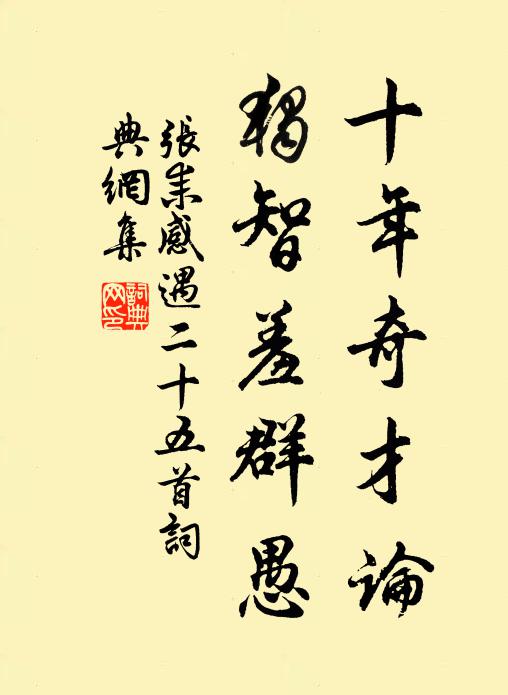 十年奇才論
獨智羞群愚
張耒感遇二十五首詞
典網集
詞典
网印